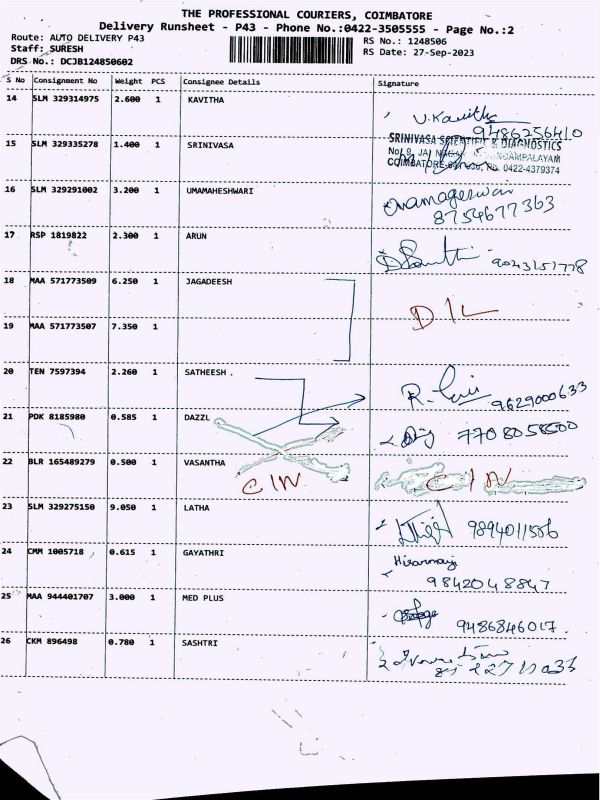 THE PROFESSIONAL COURIERS, COIMBATORE
Delivery Runsheet - P43 - Phone No.:0422-3505555 - Page No.:2
Route: AUTO DELIVERY P43
RS No.: 1248506
Staff: SURESH
RS Date: 27-Sep-2023
DRS No.: DCJB124850602
S No Consignment No Weight PCS Consignee Details Signature
14 SLM 329314975 2.600 1 KAVITHA
V.Kavitha
9486256410
15 SLM 329335278 1.400 1 SRINIVASA
SRINIVASA SCIENTIFIC & DIAGNOSTICS
No. 9, JAI NAGAR
COIMBATORE 0422-4379374
16 SLM 329291002 3.200 1 UMAMAHESHWARI
8754677363
17 RSP 1819822 2.300 1 ARUN
9043151778
18 MAA 571773509 6.250 1 JAGADEESH
D/L
19 MAA 571773507 7.350 1
20 TEN 7597394 2.260 1 SATHEESH .
9629000633
21 PDK 8185980 0.585 1 DAZZL
7708058500
22 BLR 165489279 0.500 1 VASANTHA
C/N C/N
23 SLM 329275150 9.050 1 LATHA
9894011586
24 CMM 1005718 0.615 1 GAYATHRI
9842048847
25 MAA 944401707 3.000 1 MED PLUS
9486846017
26 CKM 896498 0.780 1 SASHTRI